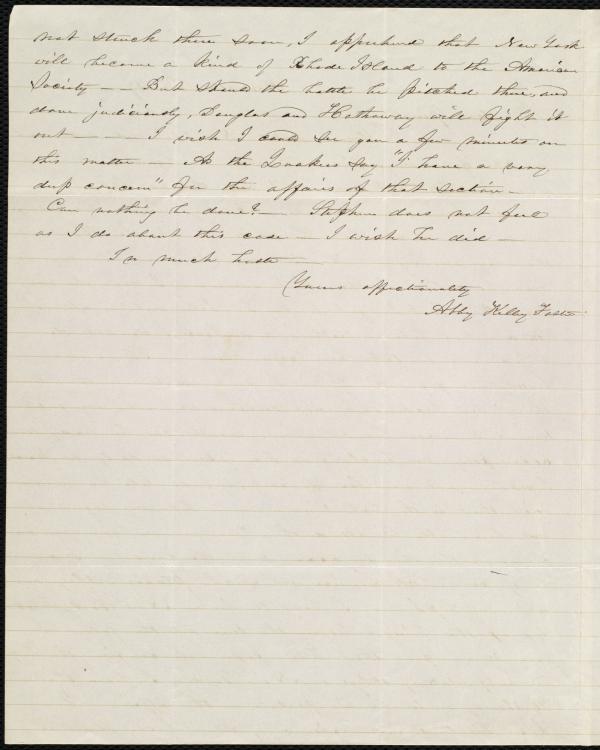 not struck there soon, I apprehend that New York
will become a kind of Rhode Island to the American
Society – – But should the battle be pitched there, and
done judiciously, Douglas and Hathaway will fight it
out – – – I wish I could see you a few minutes on
this matter – As the Quakers say "I have a very
deep concern" for the affairs of that section –
Can nothing be done? – Stephen does not feel
as I do about this case – I wish he did –
In much haste –
Yours affectionately
Abby Kelley Foster